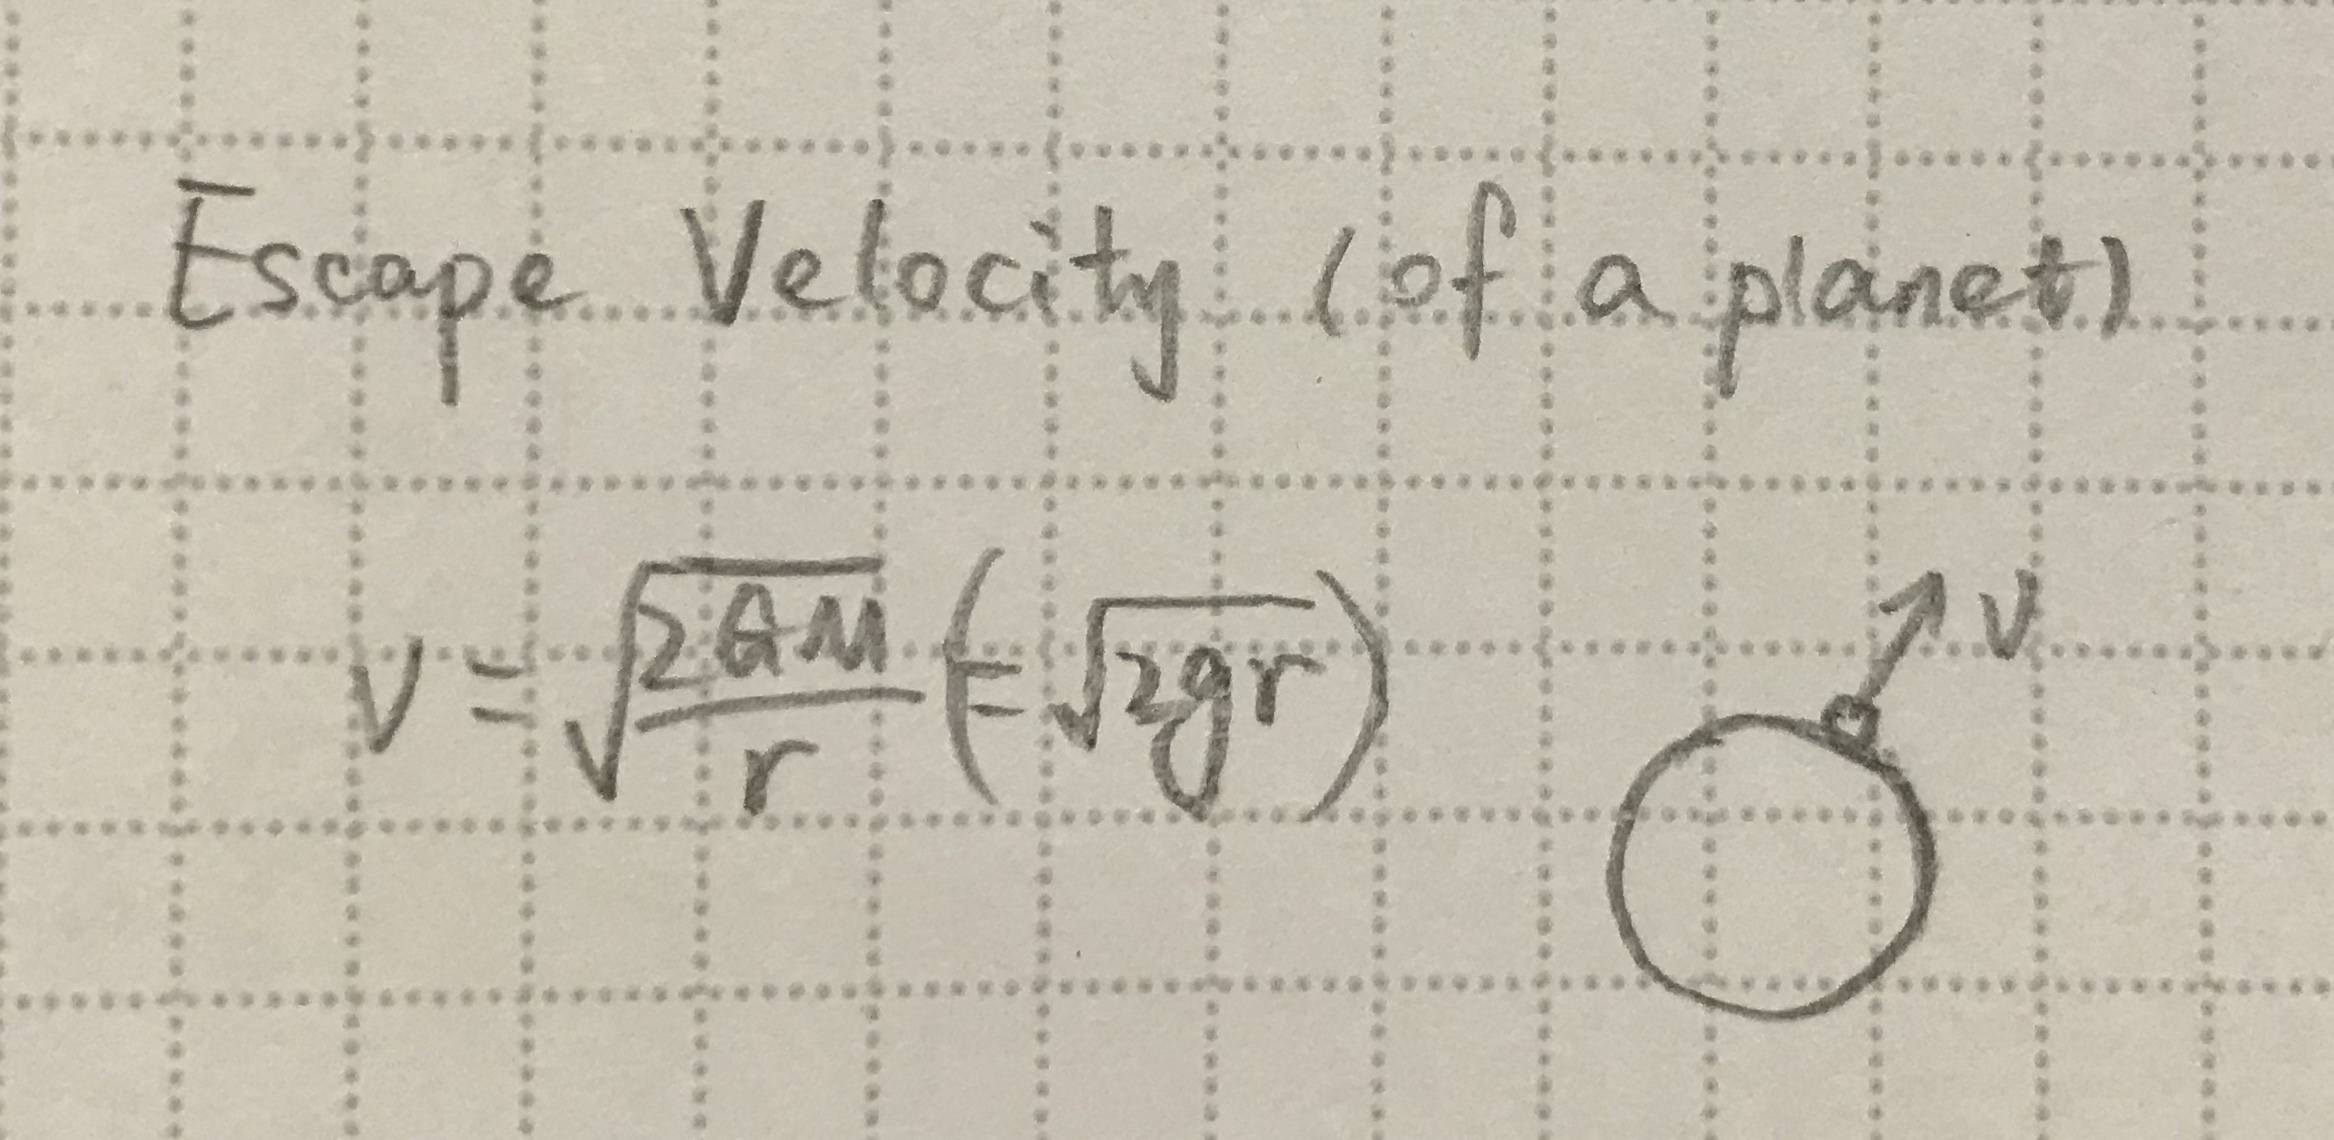 Escape Velocity (of a planet)
v = √(2GM/r) (= √2gr)
v